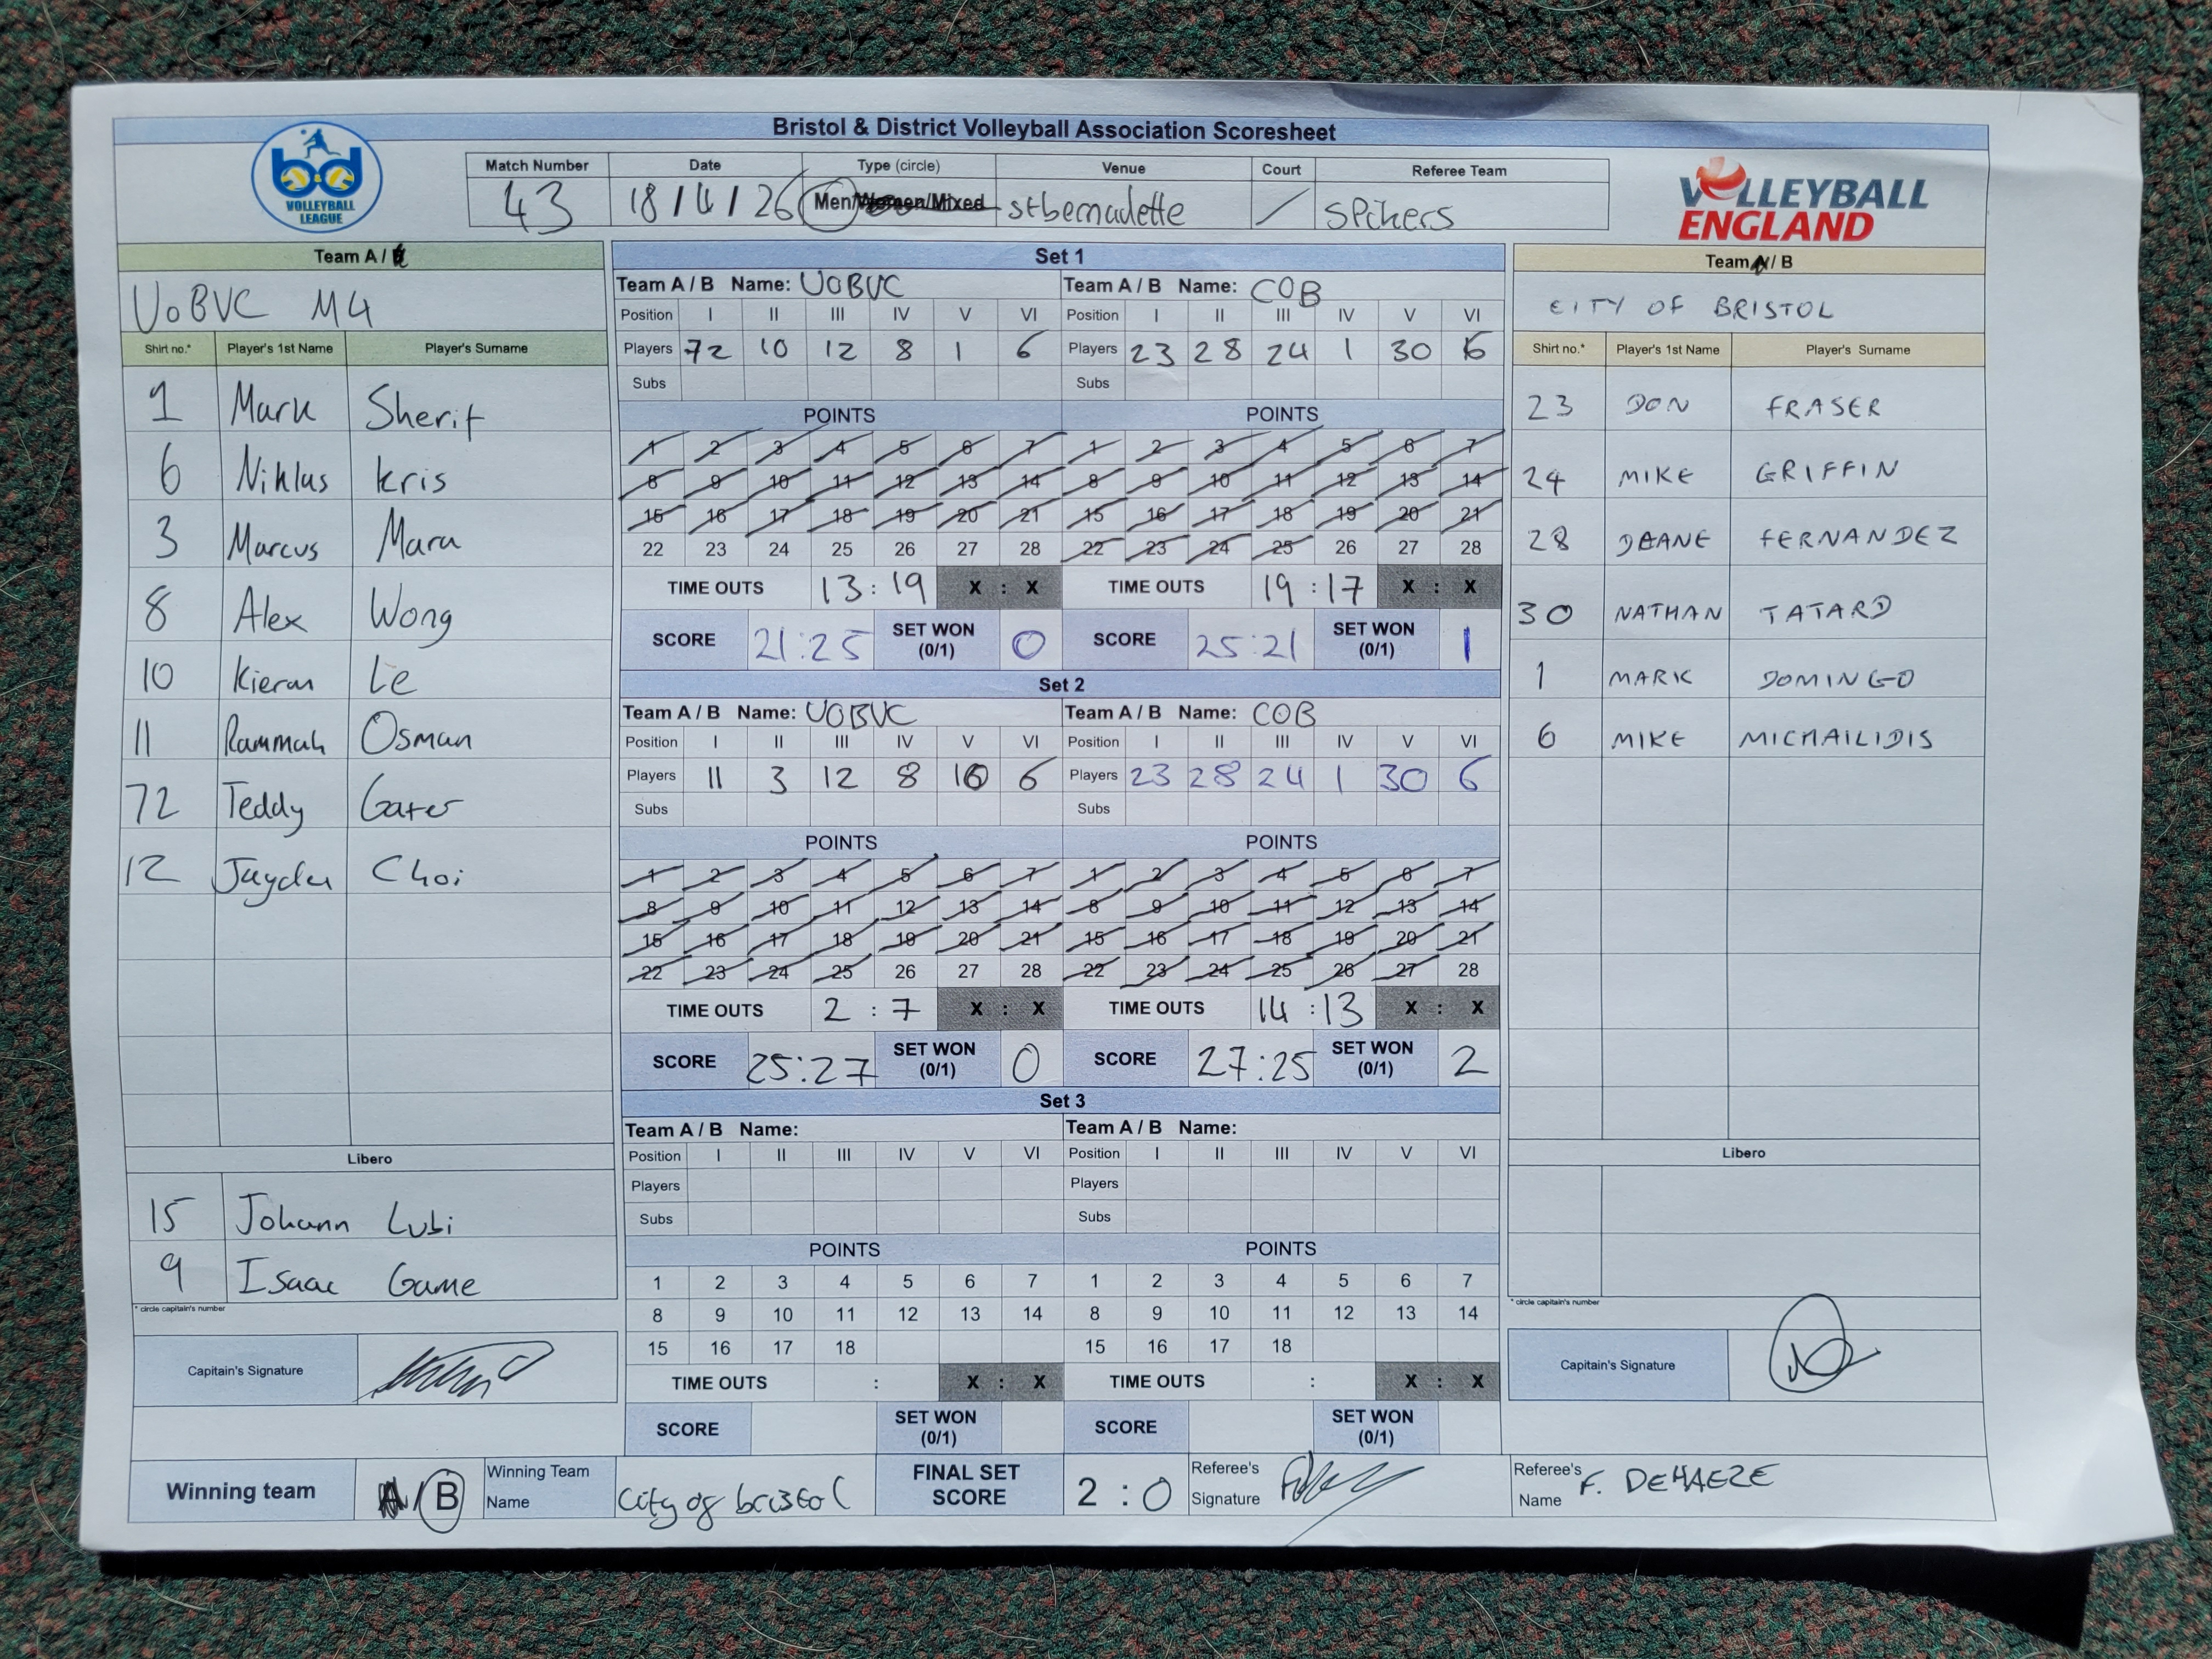 Bristol & District Volleyball Association Scoresheet
bd VOLLEYBALL LEAGUE
Match Number Date Type (circle) Venue Court Referee Team
43 18/4/26 Men/Women/Mixed st bernadette / Spikers
VOLLEYBALL ENGLAND
Team A /
UoBVC M4
Shirt no.* Player's 1st Name Player's Surname
1 Mark Sherif
6 Niklas Kris
3 Marcus Mara
8 Alex Wong
10 Kieran Le
11 Rammah Osman
72 Teddy Gater
12 Jayden Choi
Libero
15 Johann Lubi
9 Isaac Game
* circle capitain's number
Capitain's Signature
Set 1
Team A / B Name: UOBVC Team A / B Name: COB
Position I II III IV V VI Position I II III IV V VI
Players 72 10 12 8 1 6 Players 23 28 24 1 30 6
Subs Subs
POINTS POINTS
1 2 3 4 5 6 7 1 2 3 4 5 6 7
8 9 10 11 12 13 14 8 9 10 11 12 13 14
15 16 17 18 19 20 21 15 16 17 18 19 20 21
22 23 24 25 26 27 28 22 23 24 25 26 27 28
TIME OUTS 13 : 19 X : X TIME OUTS 19 : 17 X : X
SCORE 21:25 SET WON (0/1) 0 SCORE 25:21 SET WON (0/1) 1
Set 2
Team A / B Name: UOBVC Team A / B Name: COB
Position I II III IV V VI Position I II III IV V VI
Players 11 3 12 8 10 6 Players 23 28 24 1 30 6
Subs Subs
POINTS POINTS
1 2 3 4 5 6 7 1 2 3 4 5 6 7
8 9 10 11 12 13 14 8 9 10 11 12 13 14
15 16 17 18 19 20 21 15 16 17 18 19 20 21
22 23 24 25 26 27 28 22 23 24 25 26 27 28
TIME OUTS 2 : 7 X : X TIME OUTS 14 : 13 X : X
SCORE 25:27 SET WON (0/1) 0 SCORE 27:25 SET WON (0/1) 2
Set 3
Team A / B Name: Team A / B Name:
Position I II III IV V VI Position I II III IV V VI
Players Players
Subs Subs
POINTS POINTS
1 2 3 4 5 6 7 1 2 3 4 5 6 7
8 9 10 11 12 13 14 8 9 10 11 12 13 14
15 16 17 18 15 16 17 18
TIME OUTS : X : X TIME OUTS : X : X
SCORE SET WON (0/1) SCORE SET WON (0/1)
Team A / B
CITY OF BRISTOL
Shirt no.* Player's 1st Name Player's Surname
23 DON FRASER
24 MIKE GRIFFIN
28 DEANE FERNANDEZ
30 NATHAN TATARD
1 MARK DOMINGO
6 MIKE MICHAILIDIS
Libero
* circle capitain's number
Capitain's Signature
Winning team A / B Winning Team Name City of bristol FINAL SET SCORE 2 : 0 Referee's Signature Referee's Name F. DEHAEZE